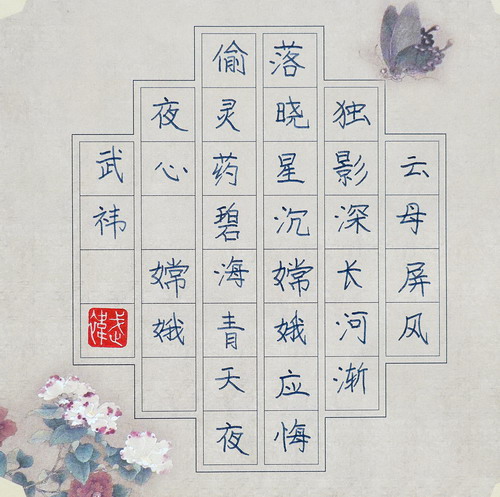 云母屏风
独影深长河渐
落晓星沉嫦娥应悔
偷灵药碧海青天夜
夜心 嫦娥
武祎